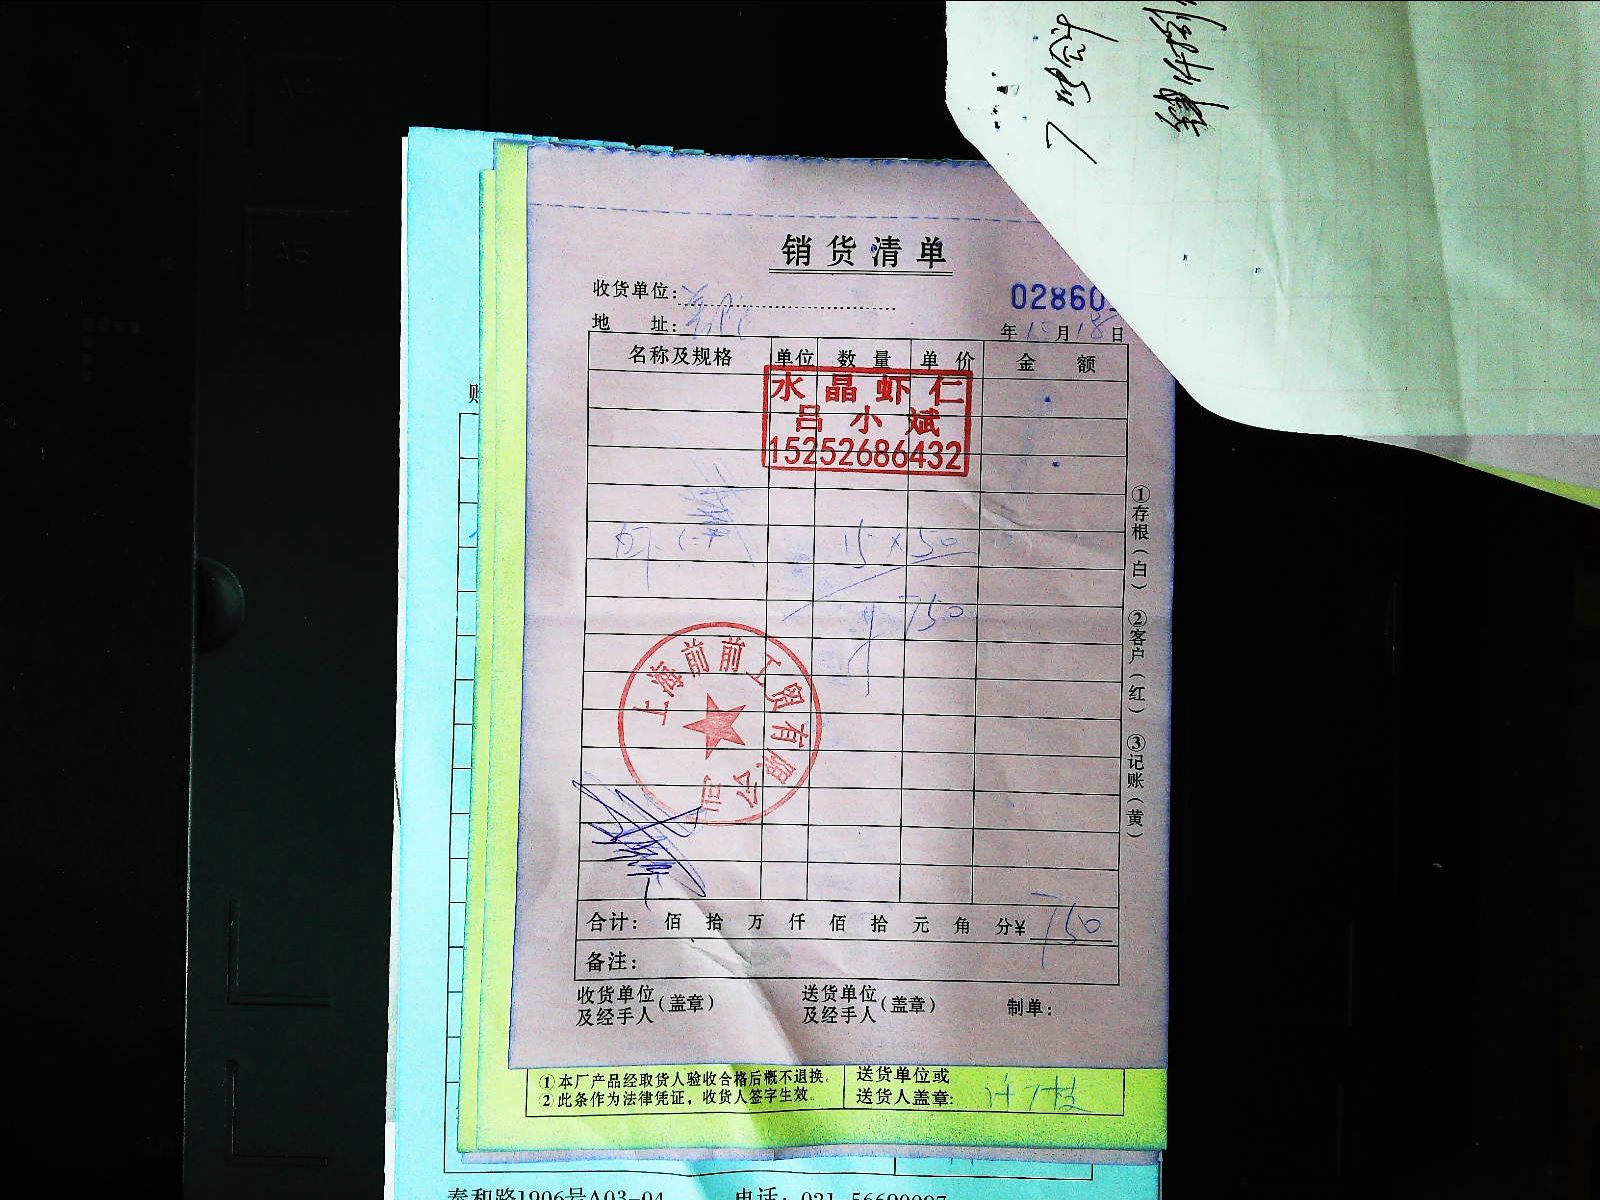 销货清单
收货单位:
02860
地 址:
年 月18日
名称及规格 单位 数量 单价 金额
水晶虾仁
吕小斌
15252686432
虾仁 15×50
750
上海前前工贸有限公司
合计: 佰 拾 万 仟 佰 拾 元 角 分¥ 750
备注:
收货单位及经手人(盖章) 送货单位及经手人(盖章) 制单:
①存根(白) ②客户(红) ③记账(黄)
①本厂产品经取货人验收合格后概不退换.
②此条作为法律凭证,收货人签字生效。
送货单位或
送货人盖章:
泰和路1906号A03-04 电话: 021-56690097